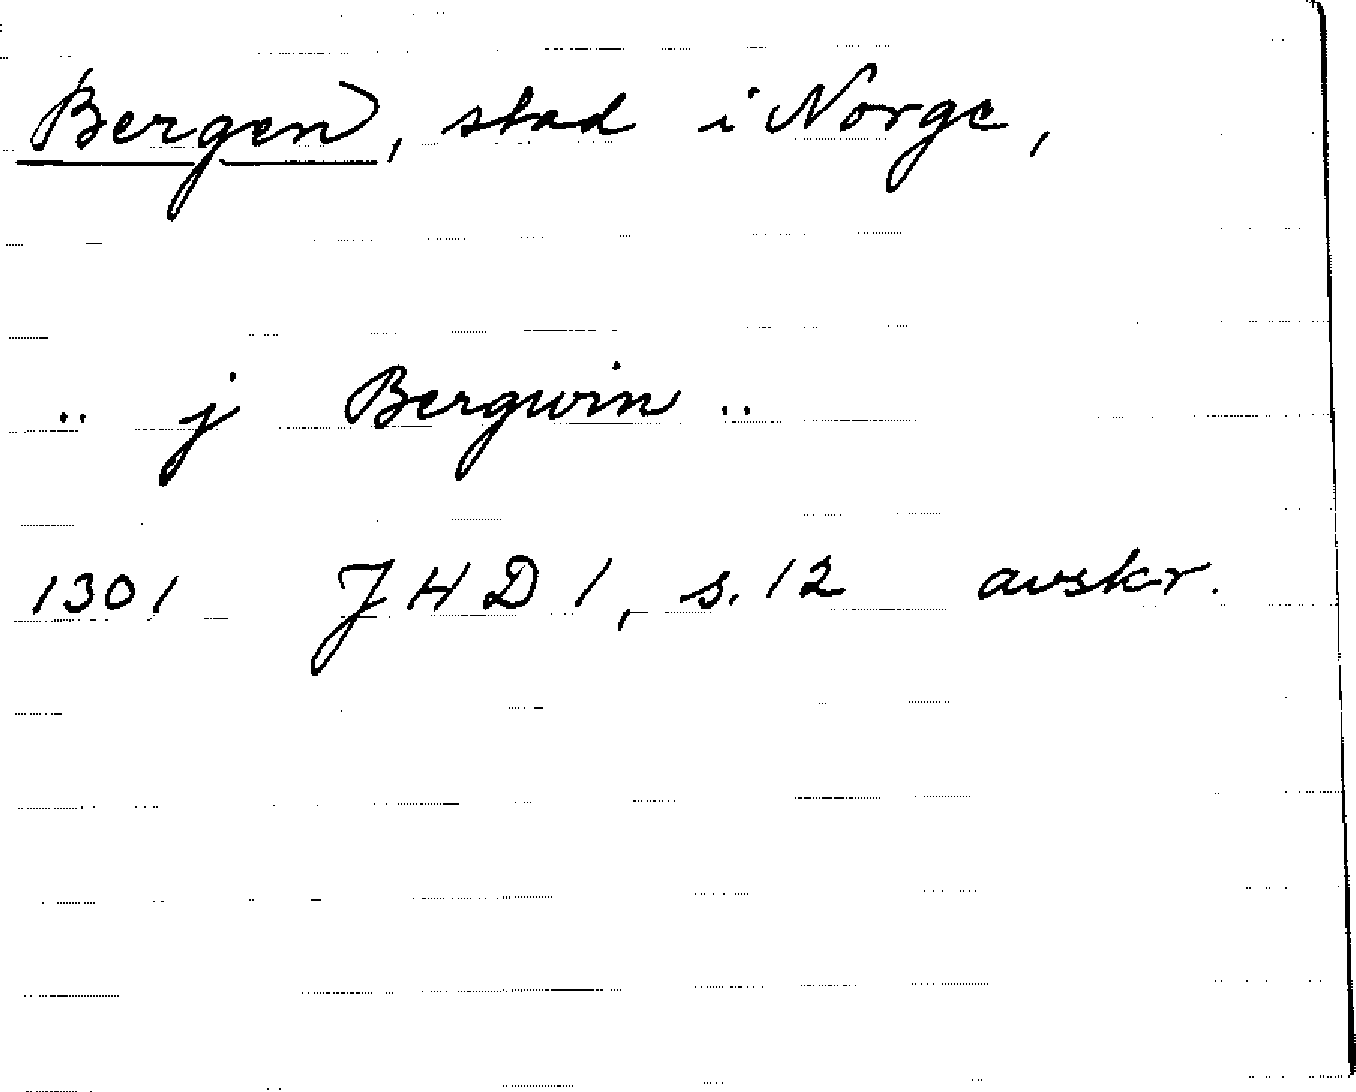 Bergen, stad i Norge,
.. j Bergwin ..
1301 JHD 1, s. 12 avskr.